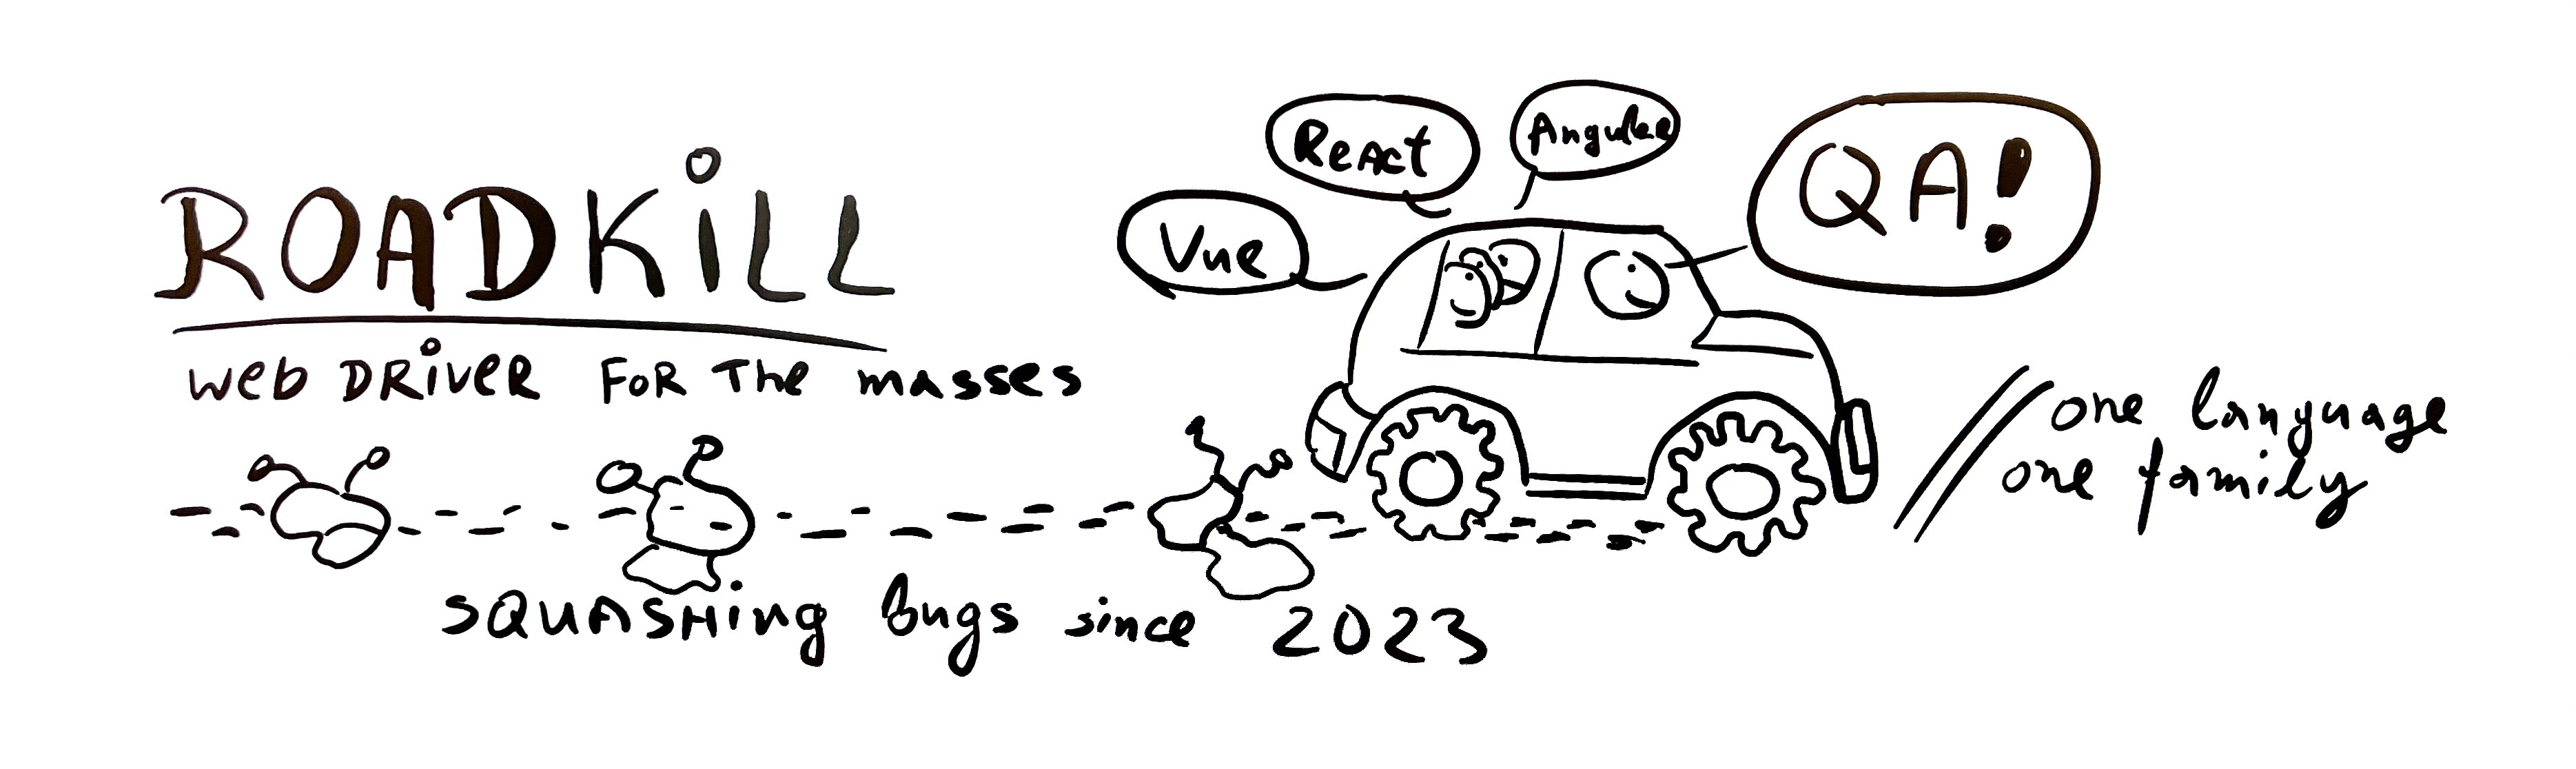 ROADKiLL
WeB DRiVeR FoR The masses
Vue
ReAct
Angular
QA!
one language
one family
SQUASHing Bugs since 2023